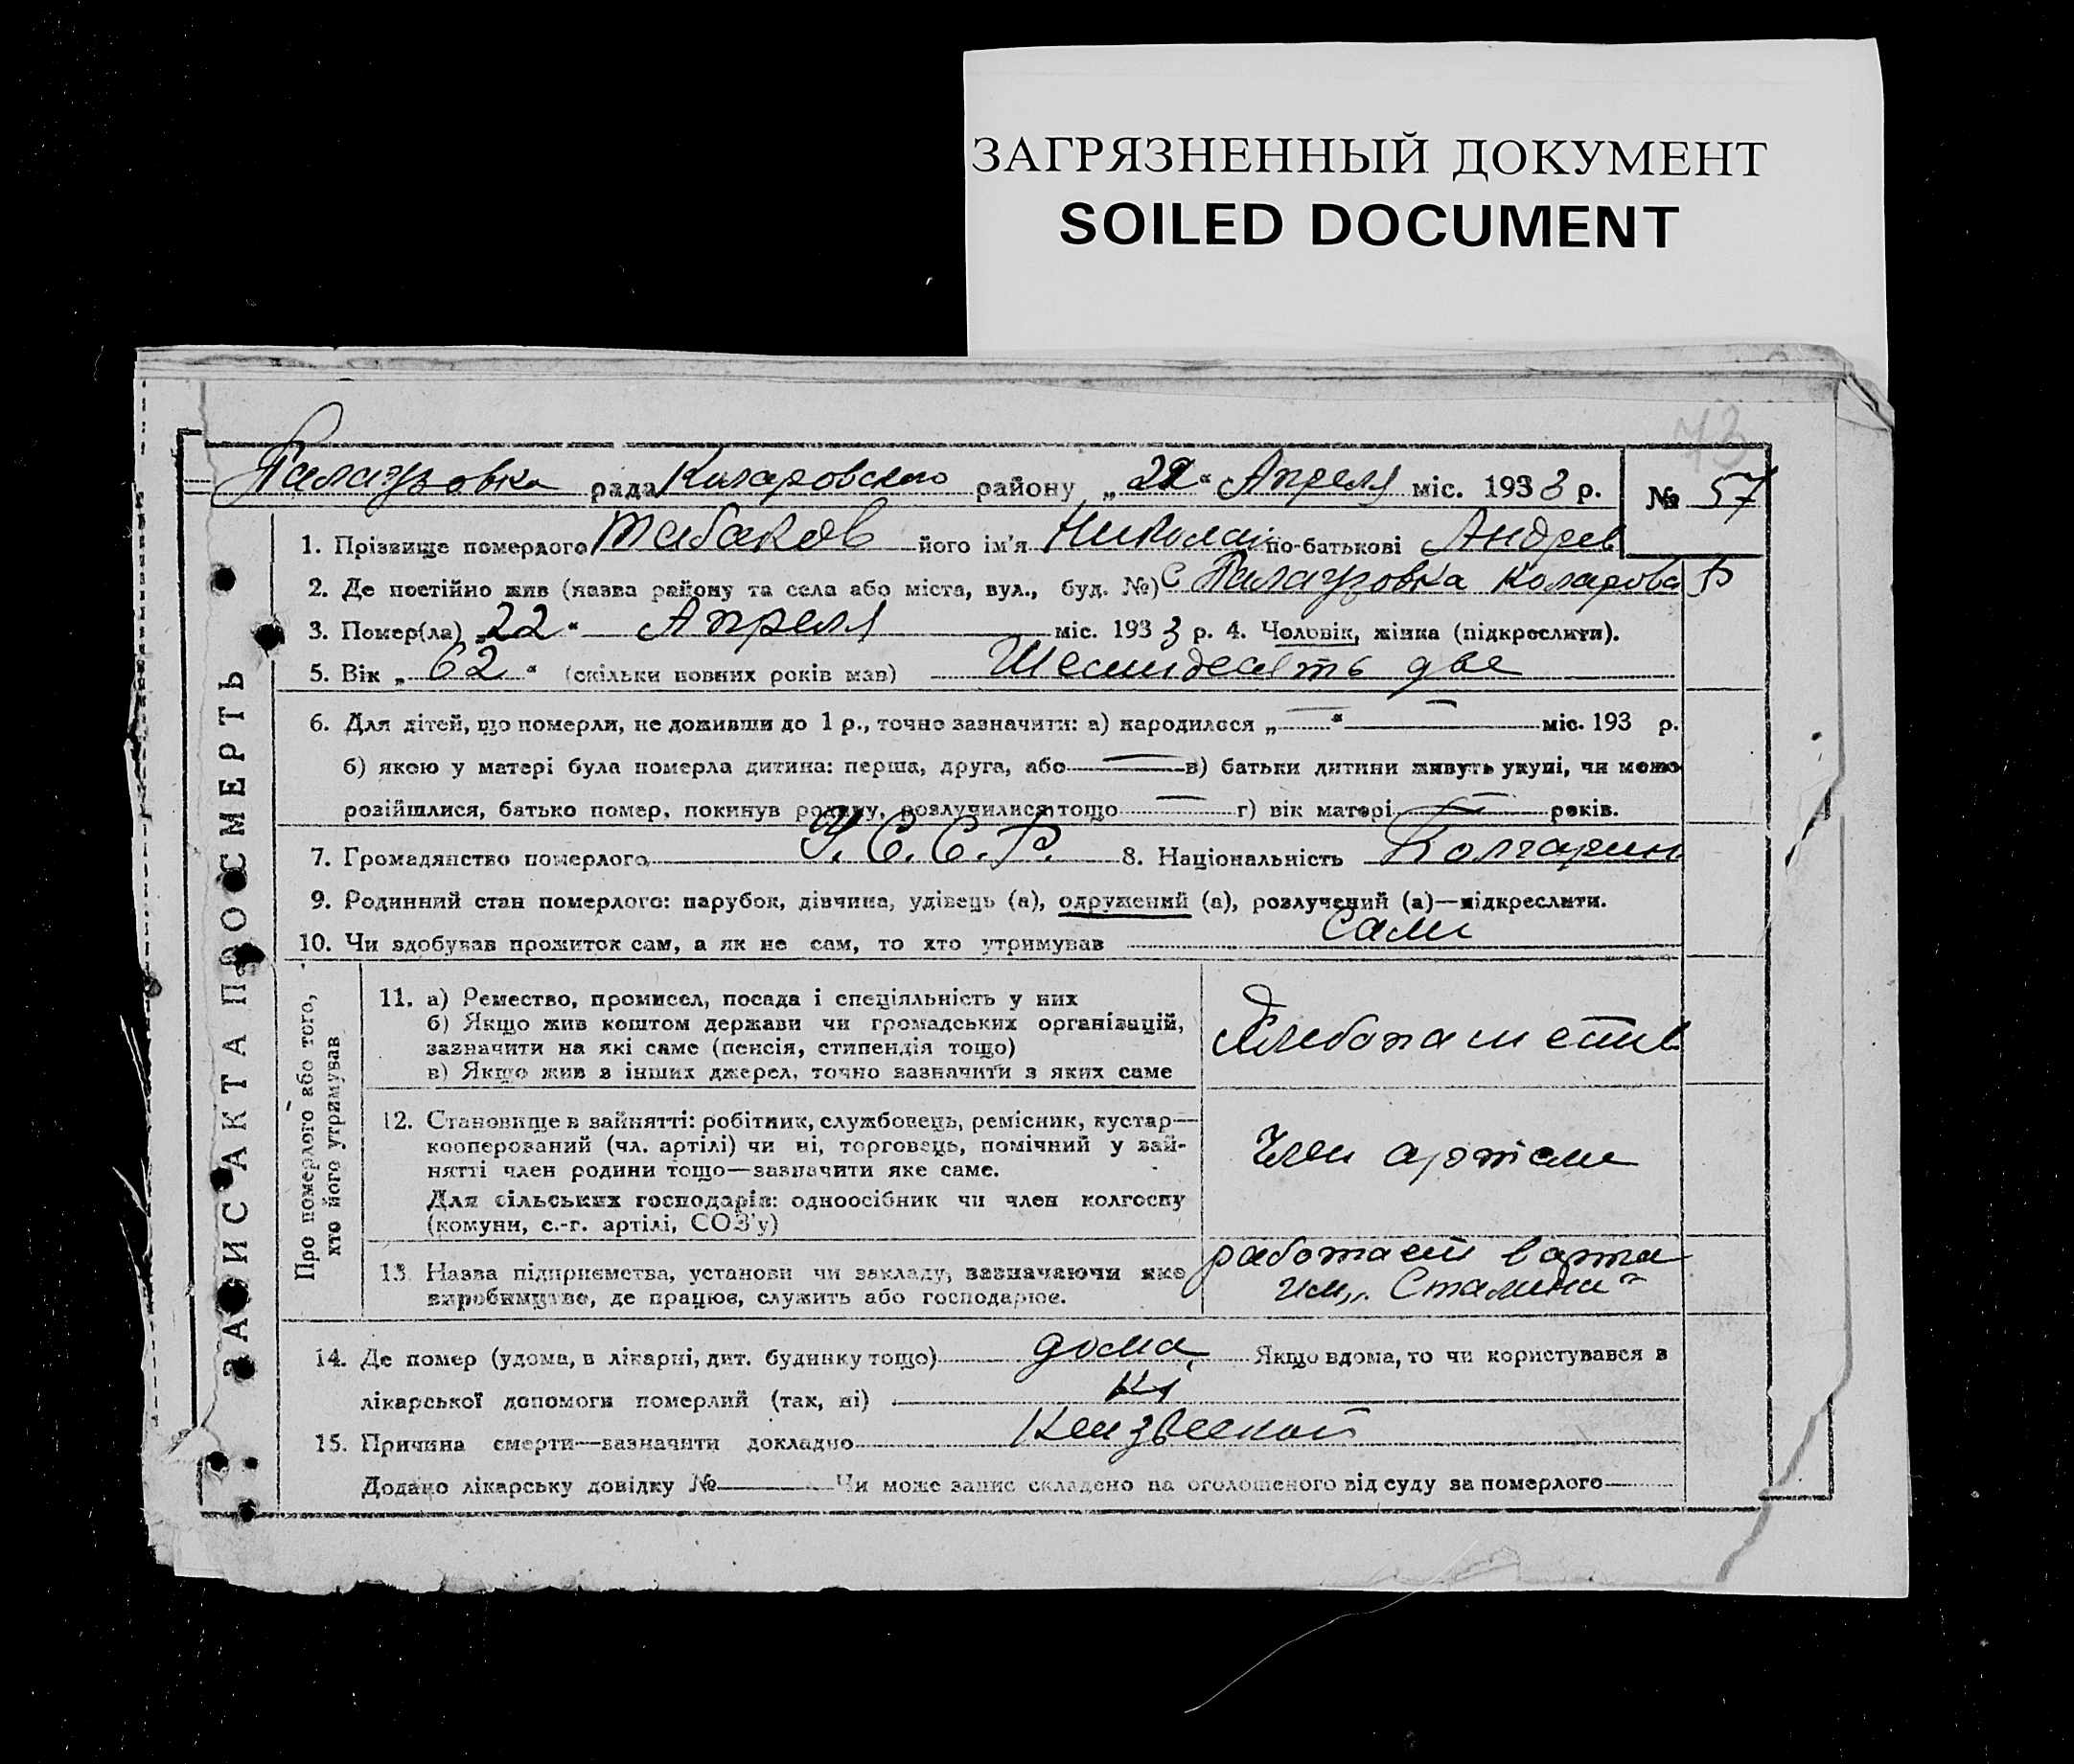 ЗАГРЯЗНЕННЫЙ ДОКУМЕНТ
SOILED DOCUMENT
73
Палаузовка рада Коларовского району „22“ Апреля міс. 1933 р. № 57
ЗАПИС АКТА ПРО СМЕРТЬ
1. Прізвище померлого Табаков його ім'я Николай по-батькові Андрев
2. Де постійно жив (назва району та села або міста, вул., буд. №) С Палаузовка Коларова
3. Помер(ла) „22“ Апреля міс. 1933 р. 4. Чоловік, жінка (підкреслити).
5. Вік „62“ (скільки повних років мав) Шестдесять две
6. Для дітей, що померли, не доживши до 1 р., точно зазначити: а) народилося „—“ — міс. 193 р.
б) якою у матері була померла дитина: перша, друга, або — в) батьки дитини живуть укупі, чи може
розійшлися, батько помер, покинув родину, розлучилися тощо — г) вік матері — років.
7. Громадянство померлого У.С.С.Р. 8. Національність Болгарин
9. Родинний стан померлого: парубок, дівчина, удівець (а), одружений (а), розлучений (а)—підкреслити.
10. Чи здобував прожиток сам, а як не сам, то хто утримував сам
Про померлого або того,
хто його утримував
11. а) Ремество, промисел, посада і спеціяльність у них
б) Якщо жив коштом держави чи громадських організацій,
зазначити на які саме (пенсія, стипендія тощо)
в) Якщо жив з інших джерел, точно зазначити з яких саме
Хлебопашетв
12. Становище в зайнятті: робітник, службовець, ремісник, кустар—
кооперований (чл. артілі) чи ні, торговець, помічний у зай-
нятті член родини тощо—зазначити яке саме.
Для сільських господарів: одноосібник чи член колгоспу
(комуни, с.-г. артілі, СОЗ'у)
Член артели
13. Назва підприємства, установи чи закладу, зазначаючи яке
виробництво, де працює, служить або господарює.
работает в арте
им„. Сталина“
14. Де помер (удома, в лікарні, дит. будинку тощо) дома Якщо вдома, то чи користувався з
лікарської допомоги померлий (так, ні) Ні
15. Причина смерти—зазначити докладно Неизвесной
Додано лікарську довідку № Чи може запис складено на оголошеного від суду за померлого